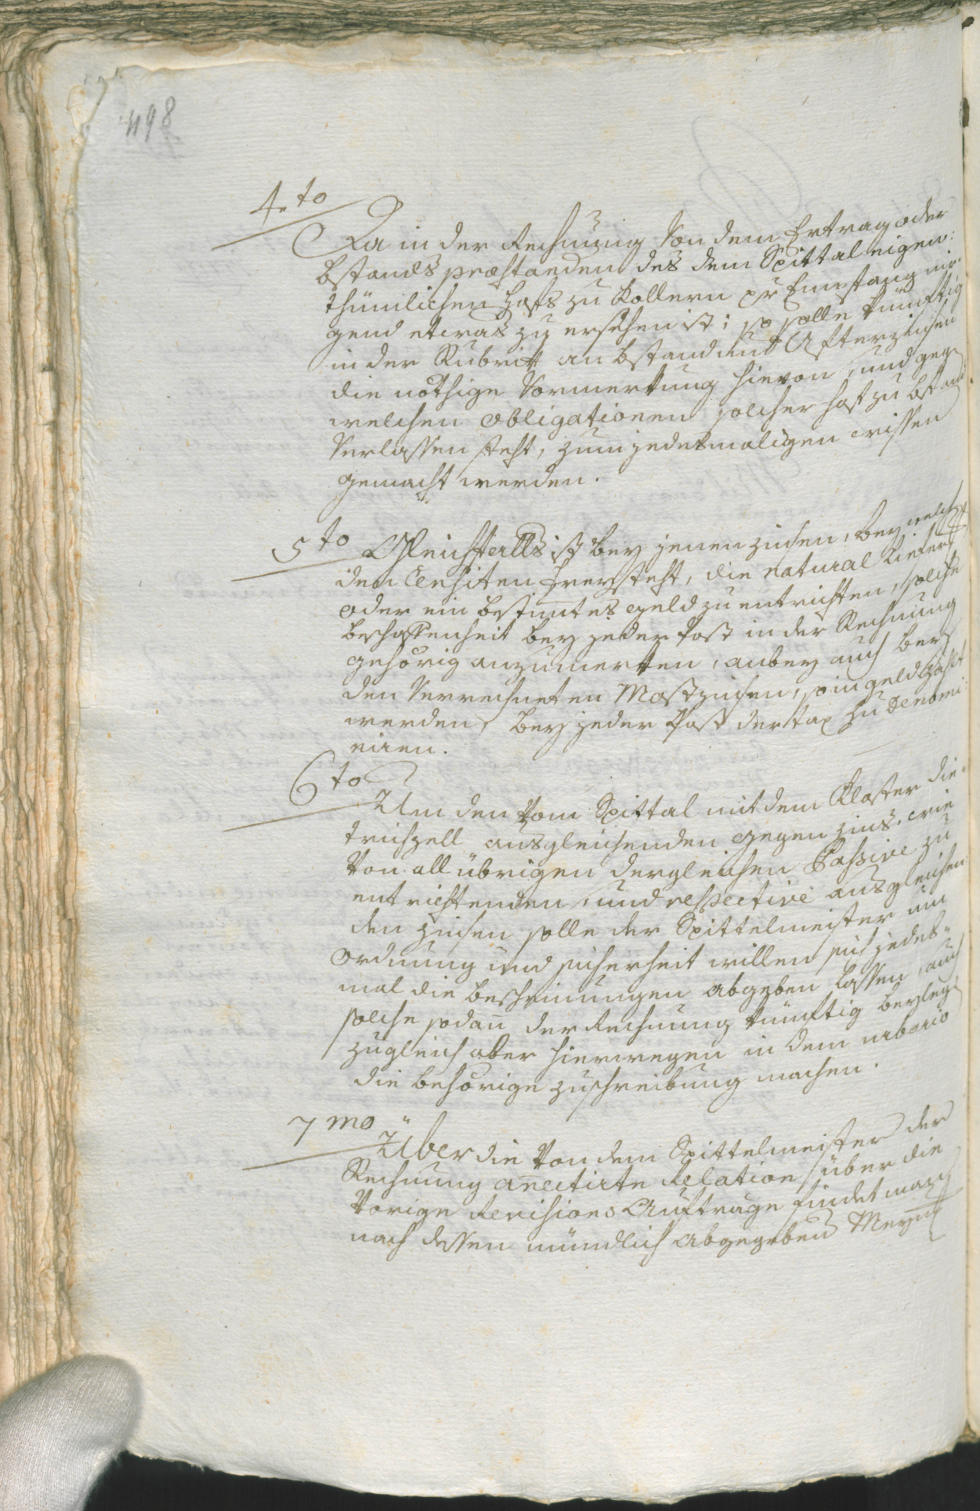 498
4.to
Da in der Rechnung von dem Ertrag oder
bstands præstanden des dem Spittal eigen-
thümlichen Hofs zu Kollern pr Empfang nir-
gend etwas zu ersehen ist; so solle künftig
in der Rubric an bstand und Afterzinsen
die nöthige Vormerkung hievon, und gegen
welchen obligationen solcher Hof zu bstand
verlassen steht, zum jedesmaligen wissen
gemacht werden.
5to Gleichfalls ist bey jenen zinsen, bey welchen
den Censiten freysteht, die natural Lieferung
oder ein bestimtes geld zu entrichten, solche
beschaffenheit bey jeder Post in der Rechnung
gehörig anzumerken, anbey auch bey
den verrechneten Mostzinsen, so in geld bezahlt
werden, bey jeder Post der tax zu denomi-
niren.
6to
Um den vom Spittal mit dem Kloster die-
trichzell ausgleichenden gegen zins, wie
von all übrigen dergleichen Passive zu
entrichtenden, und respective ausgleichen
den zinsen solle der Spittelmeister um
ordnung und sicherheit willen sich jedes-
mal die bescheinungen abgeben lassen, auch
solche sodann der Rechnung künftig beylegen
zugleich aber hierwegen in dem urbario
die behörige zuschreibung machen.
7mo
Über die von dem Spittelmeister der
Rechnung annectirte Relation über die
vorige Revisions Aufträge findet man
nach dessen mündlich abgegeben Meynung